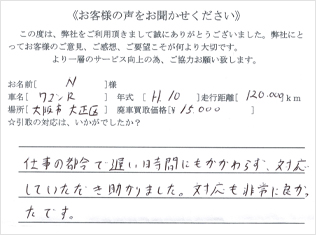 《お客様の声をお聞かせください》
この度は、弊社をご利用頂きまして誠にありがとうございました。弊社にとってお客様のご意見、ご感想、ご要望こそが何より大切です。
より一層のサービス向上の為、ご協力お願い致します。
お名前[ N ]様
車名[ ワゴンR ] 年式[ H.10 ]走行距離[ 120.000 ]km
場所[ 大阪市 大正区 ] 廃車買取価格[¥ 15.000 ]
☆引取の対応は、いかがでしたか？
仕事の都合で遅い時間にもかかわらず、対応
していただき助かりました。対応も非常に良かっ
たです。